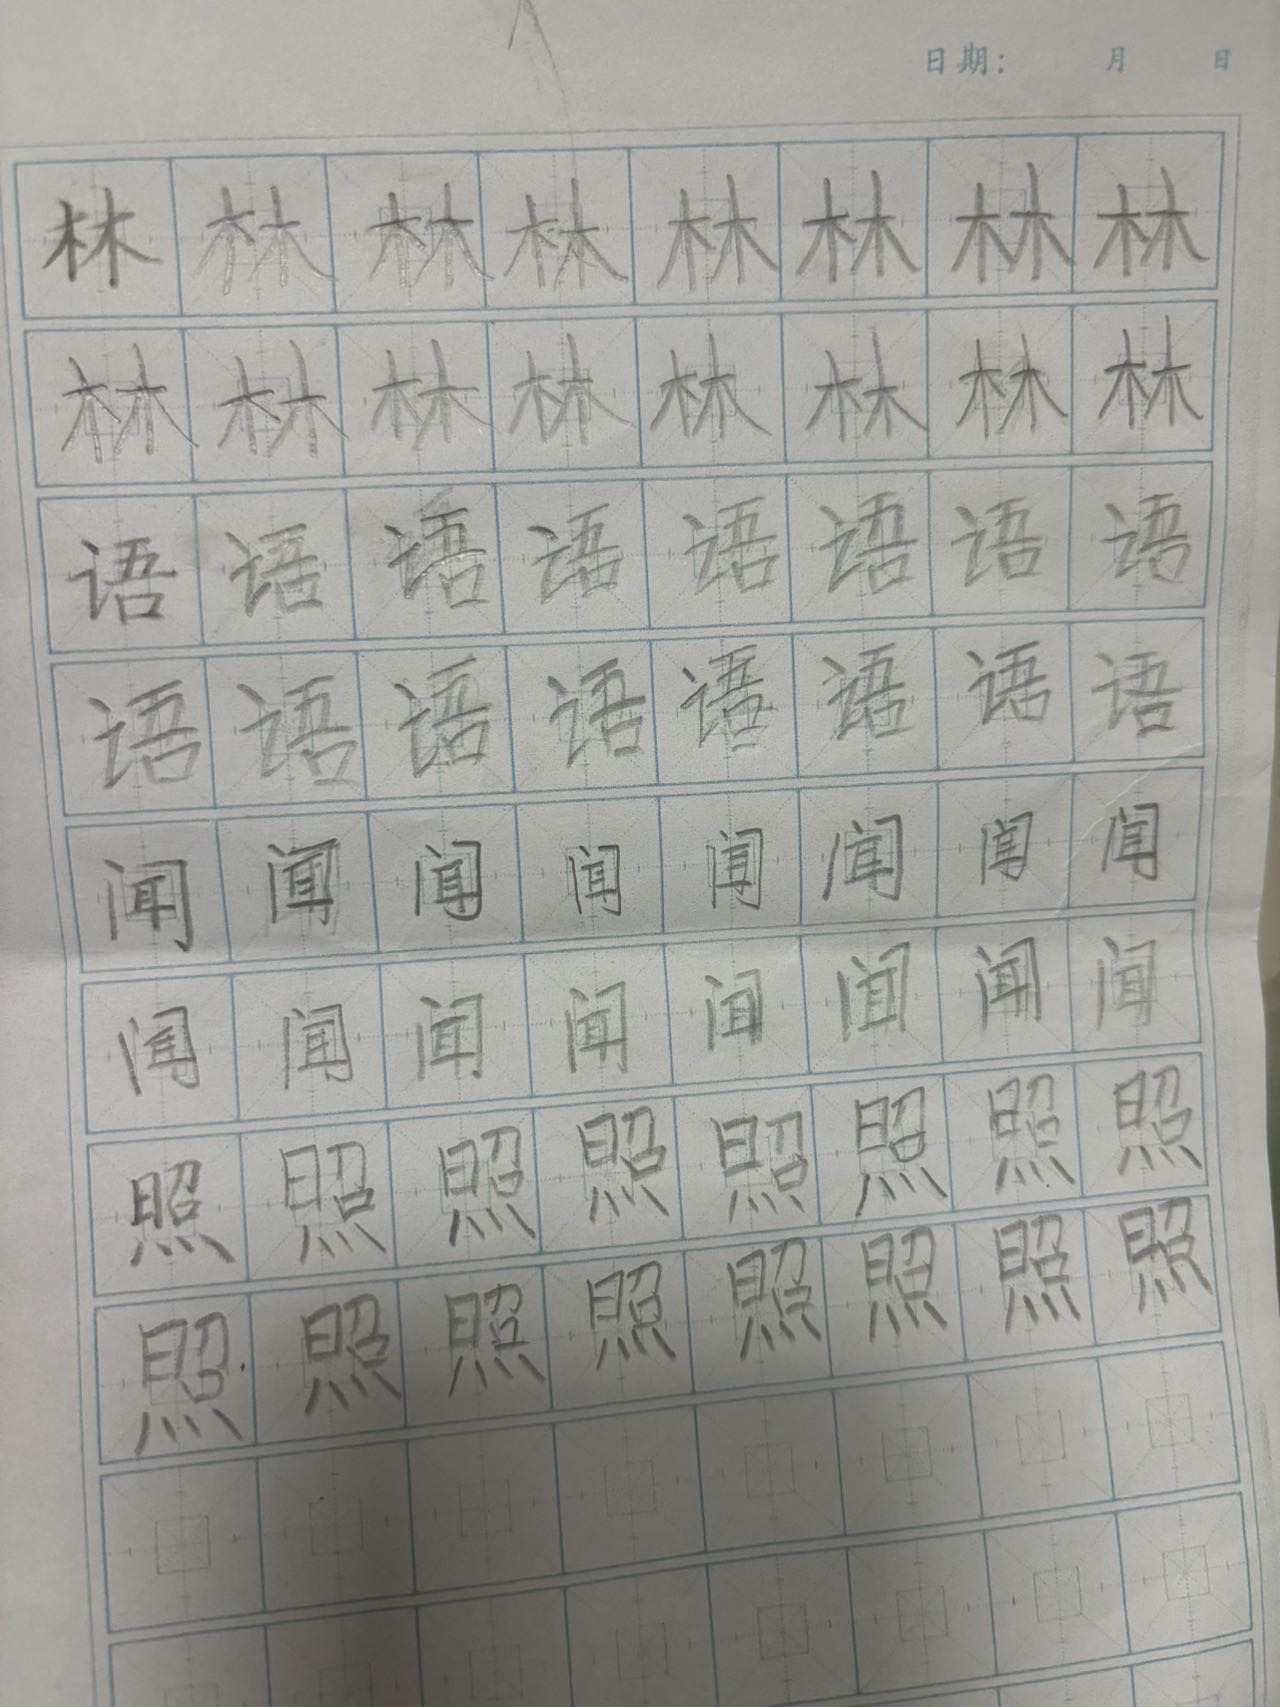 日期： 月 日
林林林林林林林林
林林林林林林林林
语语语语语语语语
语语语语语语语语
闻闻闻闻闻闻闻闻
闻闻闻闻闻闻闻闻
照照照照照照照照
照照照照照照照照